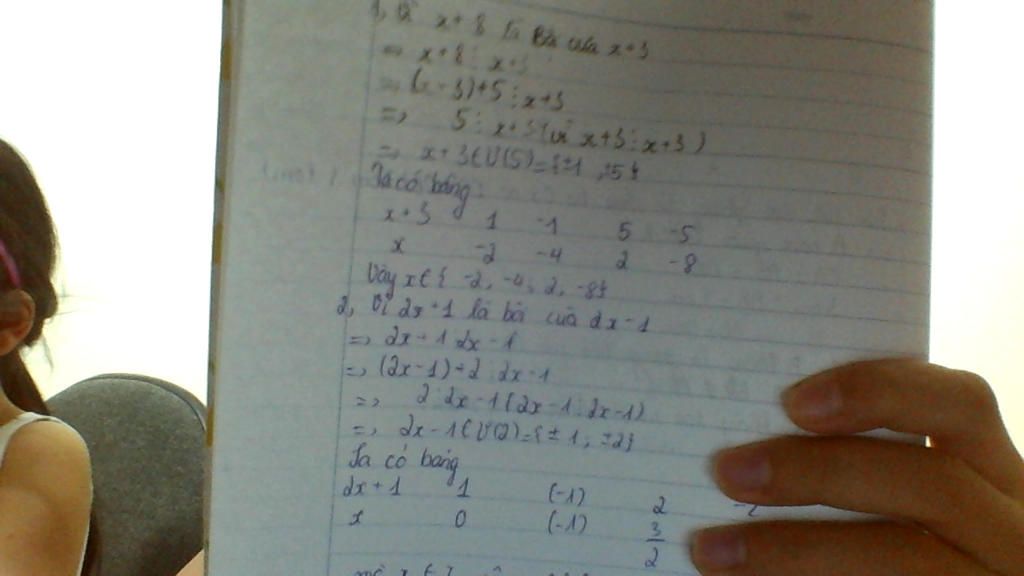 1, Vì x + 8 là Bội của x+3
=> x+8 ⋮ x+3
=> (x+3)+5 ⋮ x+3
=> 5 ⋮ x+3 (vì x+3 ⋮ x+3)
=> x+3 ∈ Ư(5) = {±1, ±5}
Ta có bảng:
x+3 1 -1 5 -5
x -2 -4 2 -8
Vậy x ∈ { -2, -4, 2, -8}
2, Vì 2x+1 là bội của 2x-1
=> 2x+1 ⋮ 2x-1
=> (2x-1)+2 ⋮ 2x-1
=> 2 ⋮ 2x-1 (2x-1 ⋮ 2x-1)
=> 2x-1 ∈ Ư(2) = {±1; ±2}
Ta có bảng
2x+1 1 (-1) 2 -2
x 0 (-1) 3/2